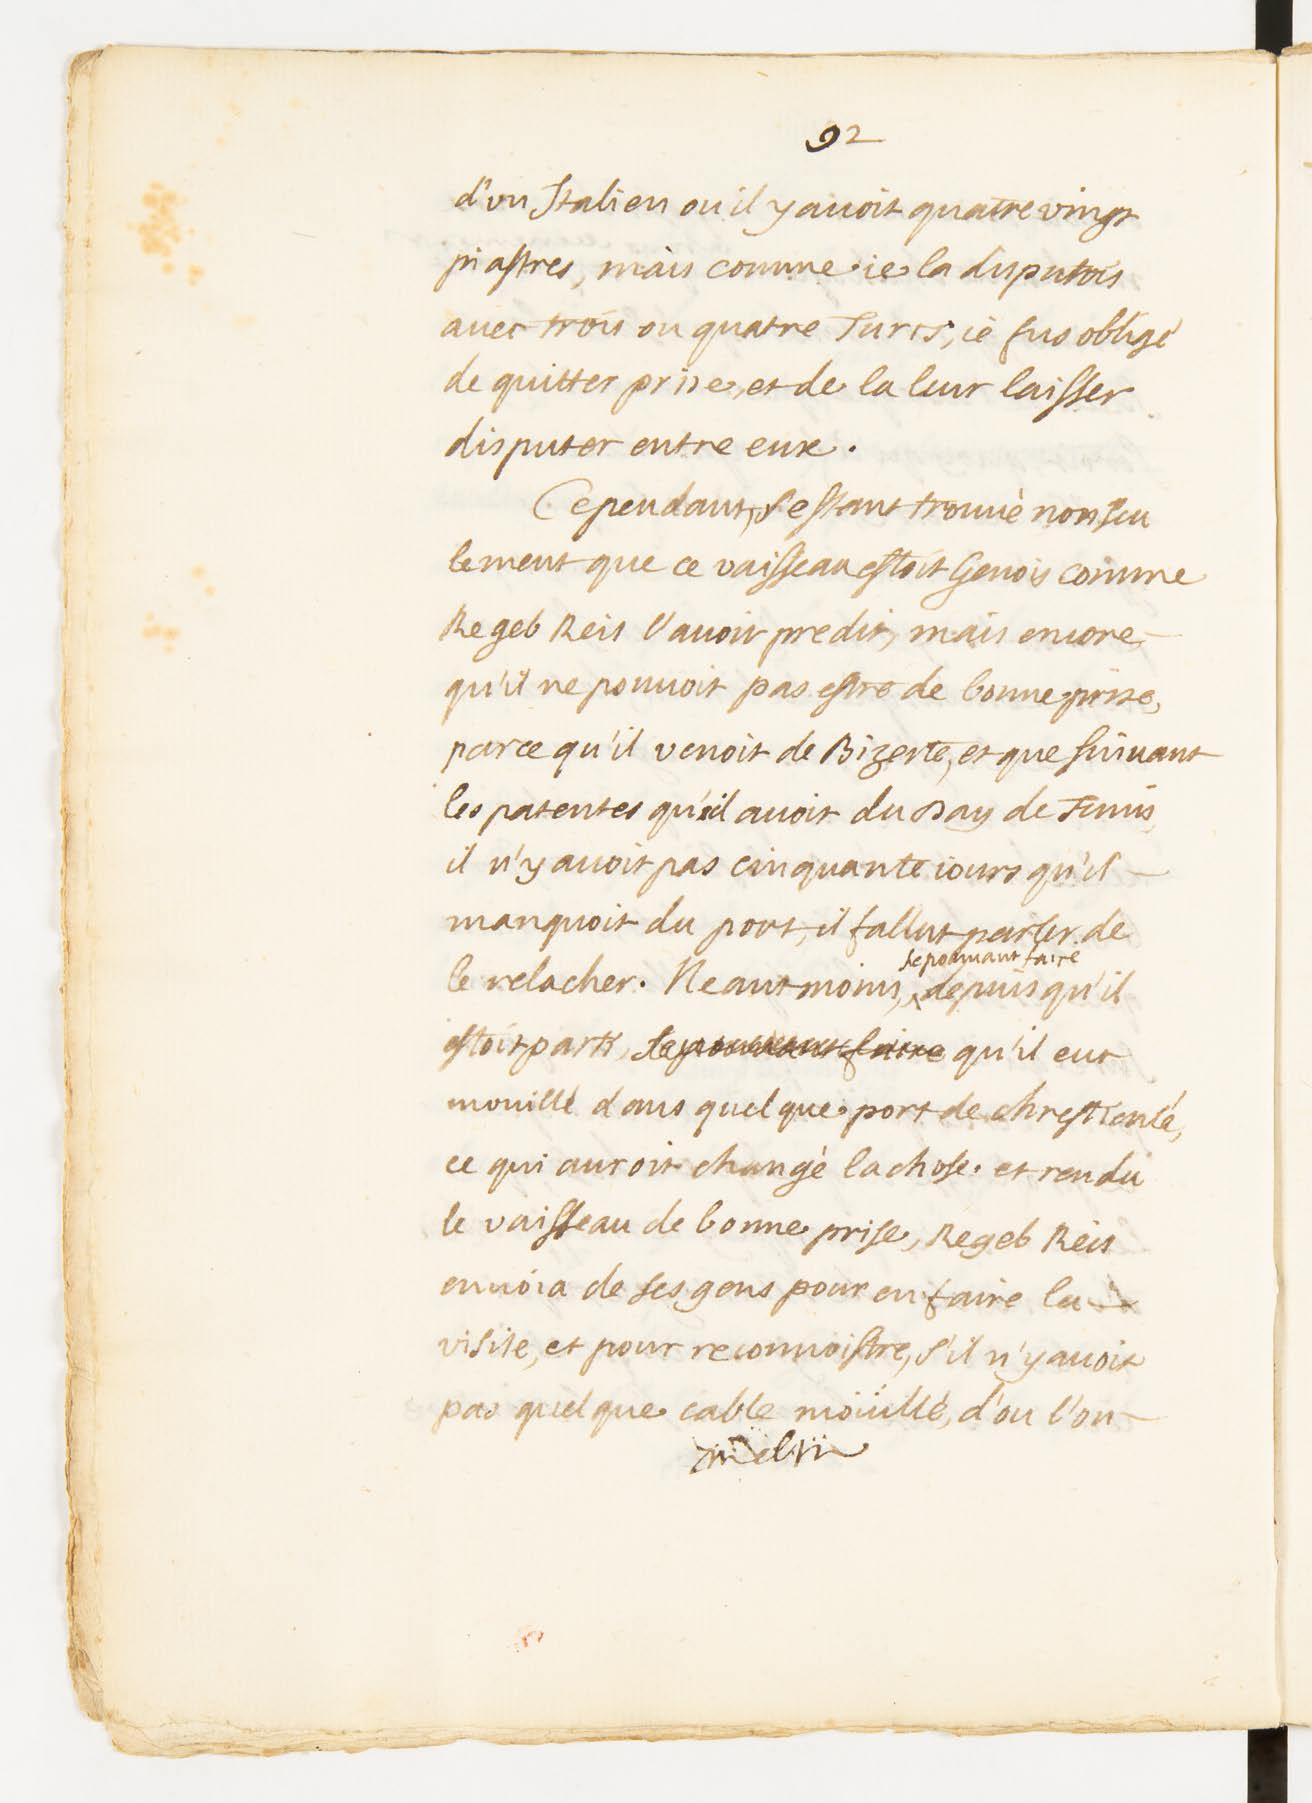 92
d'vn Italien ou il y auoit quatre vingt
piastres, mais comme ie la disputois
auec trois ou quatre Turcs, ie fus obligé
de quitter prise, et de la leur laisser
disputer entre eux.
Cependant, s'estant trouué non seu
lement que ce vaisseau estoit Genois comme
Regeb Reis l'auoit predit, mais encore
qu'il ne pouuoit pas estre de bonne prise,
parce qu'il venoit de Bizerte, et que suiuant
les patentes qu'il auoit du Day de Tunis,
il n'y auoit pas cinquante iours qu'il
manquoit du port, il fallut parler de
le relacher. Neantmoins, depuis qu'il
se pouuant faire
estoit parti, se pouuant faire qu'il eut
mouillé dans quelque port de chrestienté,
ce qui auroit changé la chose. et rendu
le vaisseau de bonne prise, Regeb Reis
enuoia de ses gens pour en faire la
visite, et pour reconnoistre, s'il n'y auoit
pas quelque cable moüillé, d'ou l'on